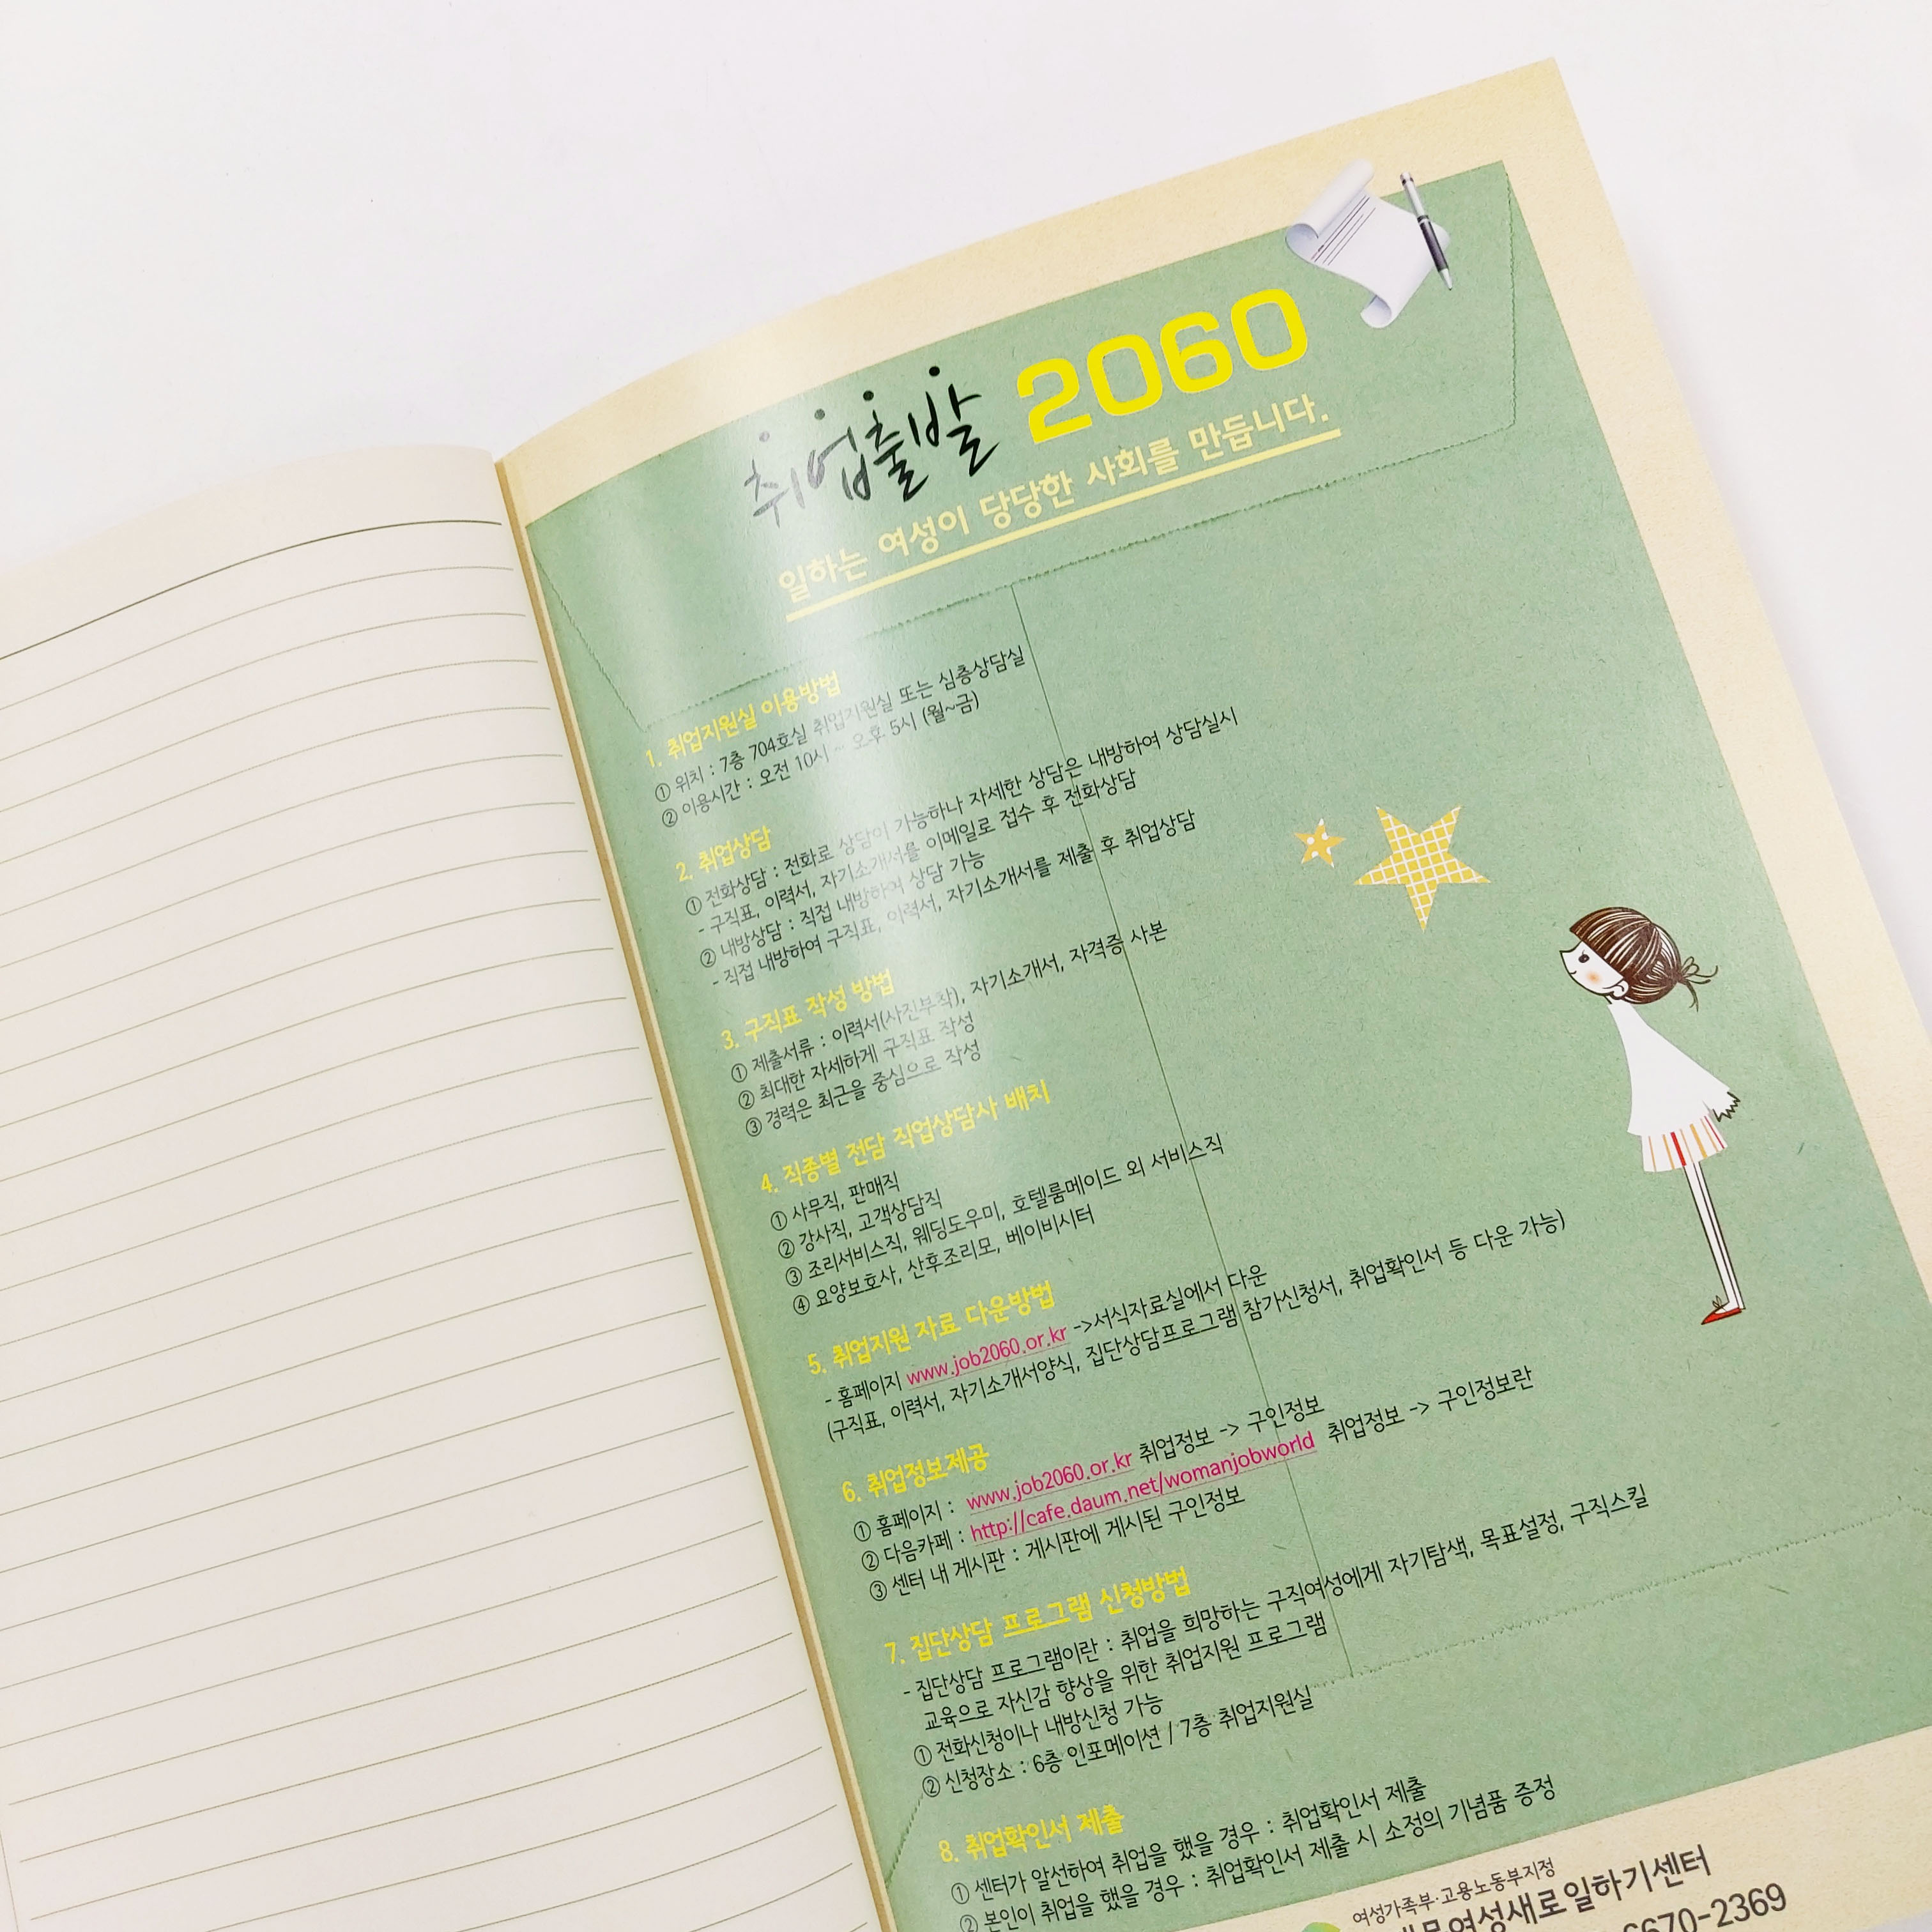 취업출발 2060
일하는 여성이 당당한 사회를 만듭니다.
1. 취업지원실 이용방법
① 위치 : 7층 704호실 취업지원실 또는 심층상담실
② 이용시간 : 오전 10시 ~ 오후 5시 (월~금)
2. 취업상담
① 전화상담 : 전화로 상담이 가능하나 자세한 상담은 내방하여 상담실시
- 구직표, 이력서, 자기소개서를 이메일로 접수 후 전화상담
② 내방상담 : 직접 내방하여 상담 가능
- 직접 내방하여 구직표, 이력서, 자기소개서를 제출 후 취업상담
3. 구직표 작성 방법
① 제출서류 : 이력서(사진부착), 자기소개서, 자격증 사본
② 최대한 자세하게 구직표 작성
③ 경력은 최근을 중심으로 작성
4. 직종별 전담 직업상담사 배치
① 사무직, 판매직
② 강사직, 고객상담직
③ 조리서비스직, 웨딩도우미, 호텔룸메이드 외 서비스직
④ 요양보호사, 산후조리모, 베이비시터
5. 취업지원 자료 다운방법
- 홈페이지 www.job2060.or.kr ->서식자료실에서 다운
(구직표, 이력서, 자기소개서양식, 집단상담프로그램 참가신청서, 취업확인서 등 다운 가능)
6. 취업정보제공
① 홈페이지 : www.job2060.or.kr 취업정보 -> 구인정보
② 다음카페 : http://cafe.daum.net/womanjobworld 취업정보 -> 구인정보란
③ 센터 내 게시판 : 게시판에 게시된 구인정보
7. 집단상담 프로그램 신청방법
- 집단상담 프로그램이란 : 취업을 희망하는 구직여성에게 자기탐색, 목표설정, 구직스킬
교육으로 자신감 향상을 위한 취업지원 프로그램
① 전화신청이나 내방신청 가능
② 신청장소 : 6층 인포메이션 / 7층 취업지원실
8. 취업확인서 제출
① 센터가 알선하여 취업을 했을 경우 : 취업확인서 제출
② 본인이 취업을 했을 경우 : 취업확인서 제출 시 소정의 기념품 증정
여성가족부·고용노동부지정
여성새로일하기센터
6670-2369